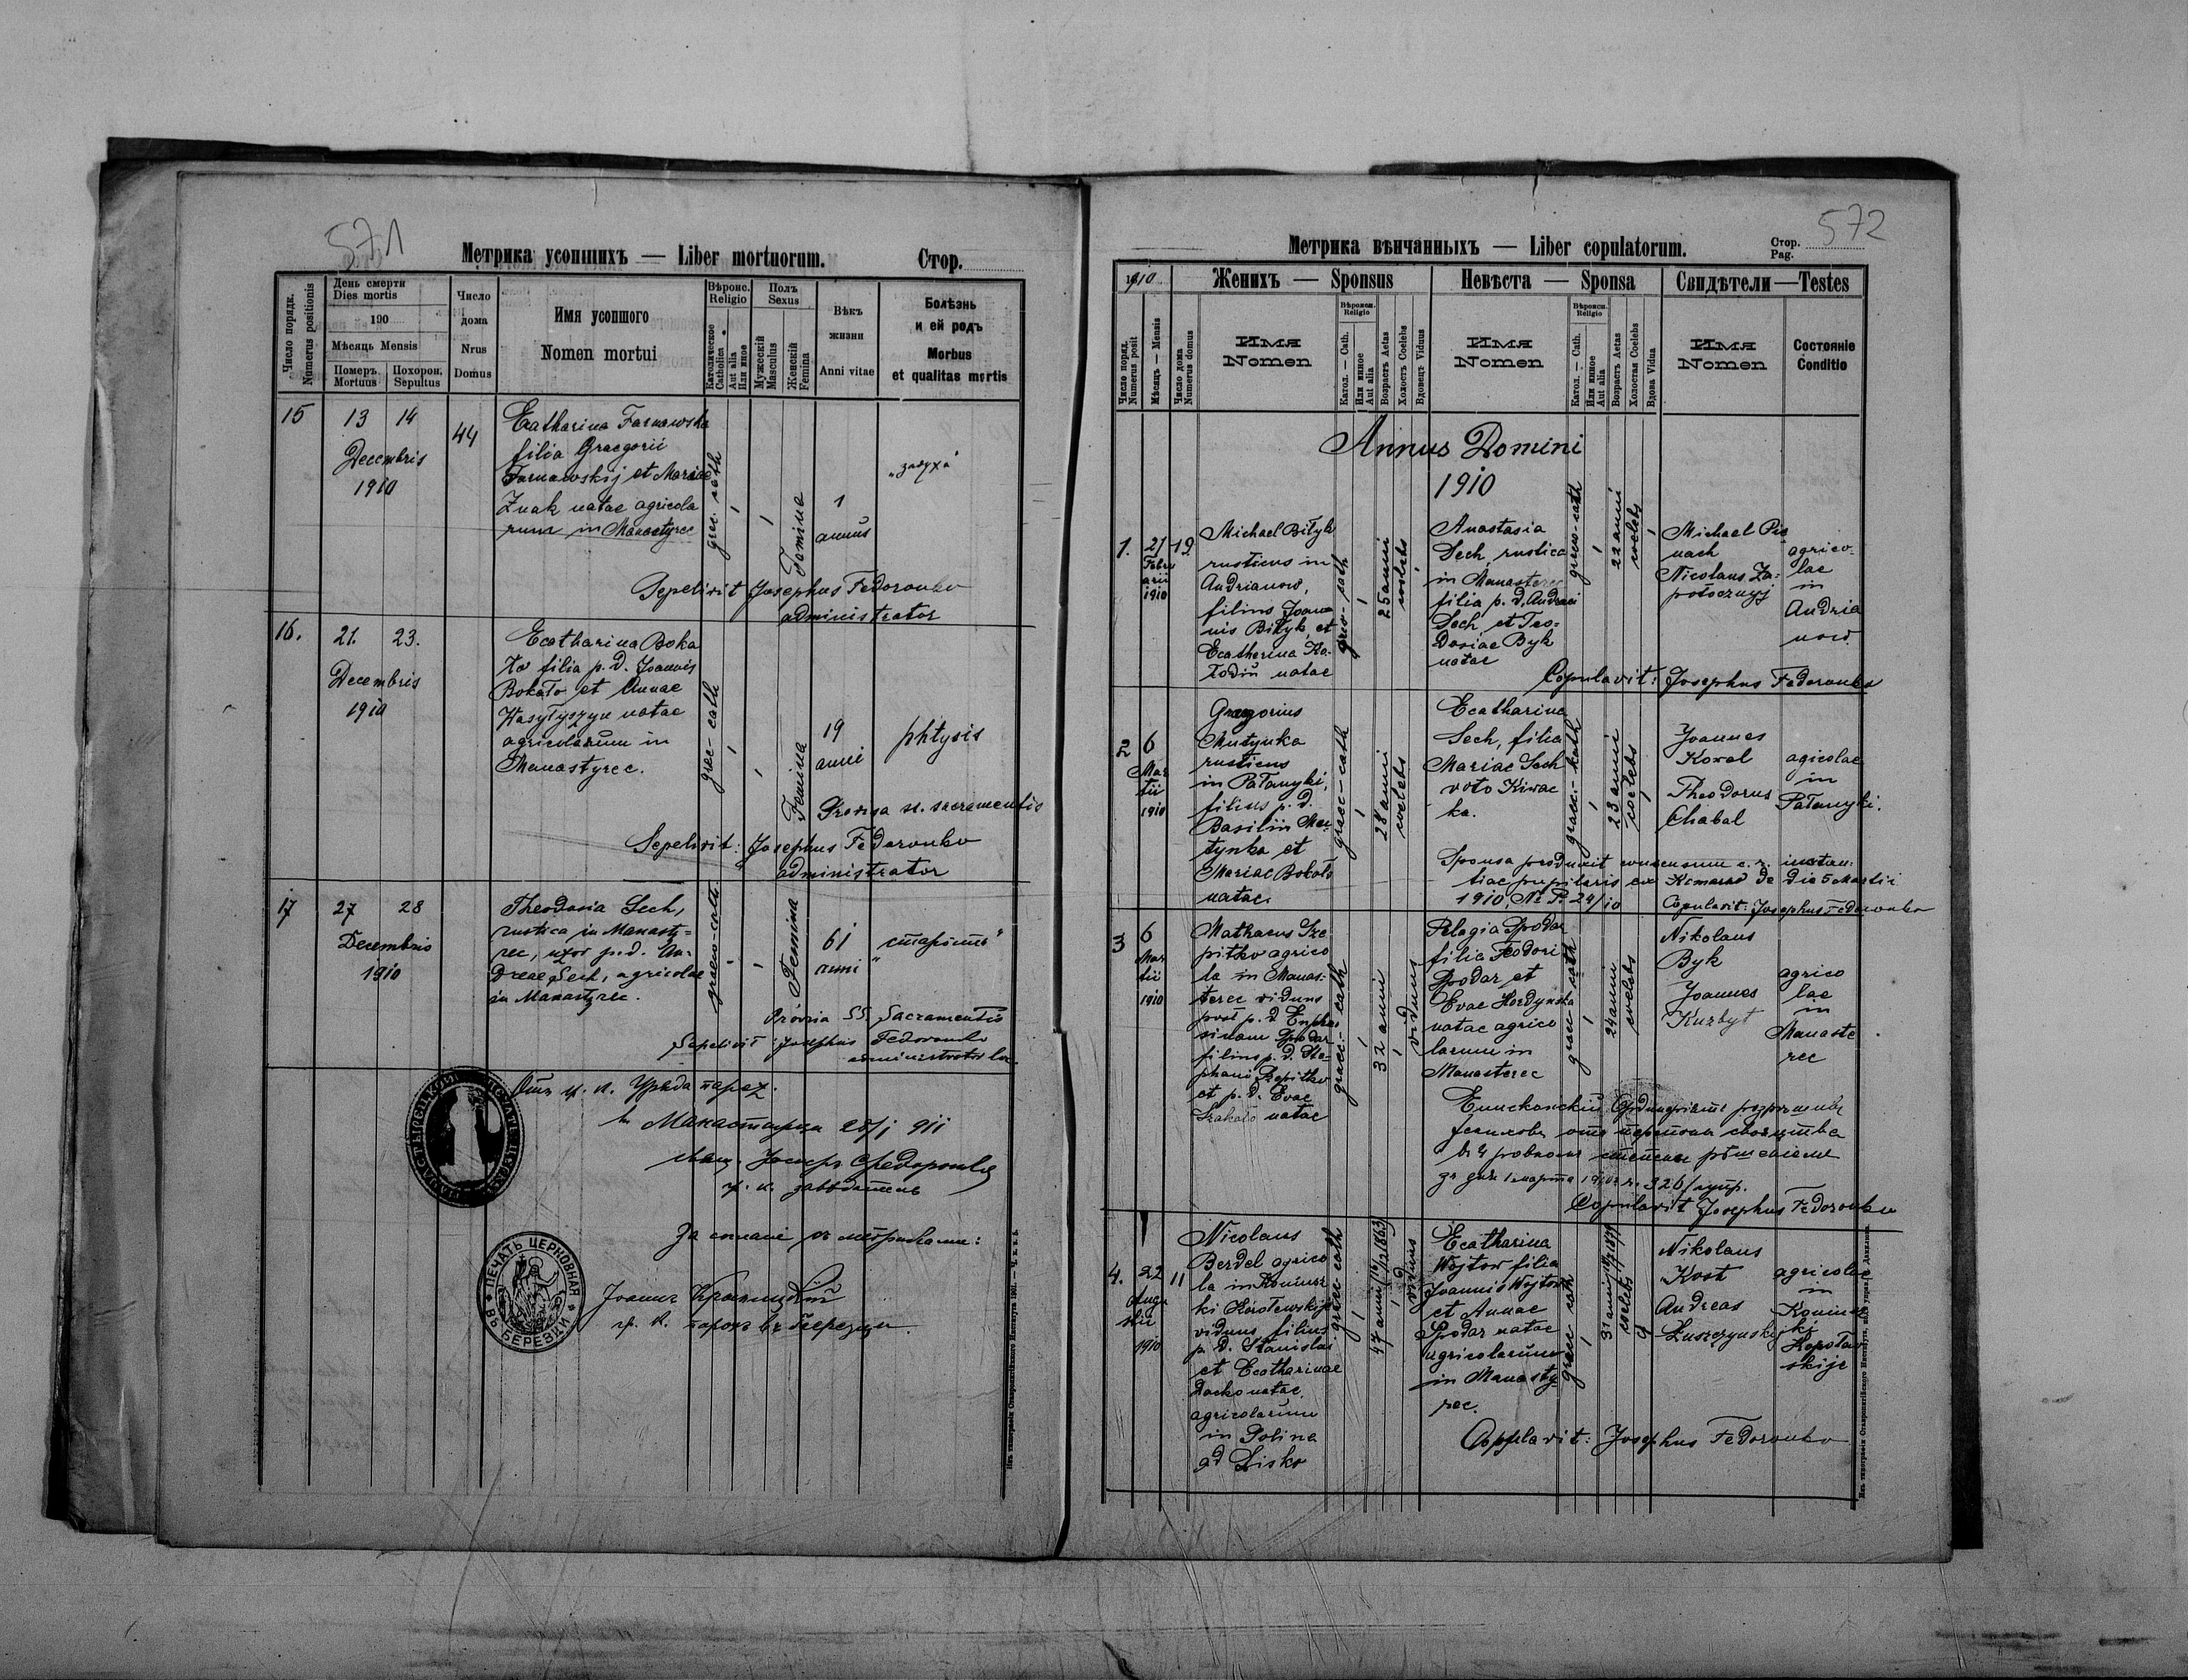 571
Метрика усопшихъ — Liber mortuorum.
Стор.
Число порядк.
Numerus positionis
День смерти
Dies mortis
190
Мѣсяць Mensis
Померъ Mortuus
Похорон. Sepultus
Число дома
Nrus Domus
Имя усопшого
Nomen mortui
Вѣроис. Religio
Католическое Catholica
Aut alia Или иное
Полъ Sexus
Мужескій Masculus
Женскій Femina
Вѣкъ жизни
Anni vitae
Болѣзнь и ей родъ
Morbus et qualitas mortis
15
13 14
Decembris
1910
44
Ecatharina Tarnawska
filia Graegorii
Tarnawskij et Mariae
Znak natae agricola
rum in Manastyrec
grec. cath
Femina
1
annus
„задуха"
Sepelivit Josephus Fedoronko
administrator
16.
21. 23.
Decembris
1910
Ecatharina Boka
ło filia p. d. Joannis
Bokało et Annae
Wasyłyszyn natae
agricolarum in
Manastyrec.
grec-cath
Femina
19
anni
phtysis
Provisa ss. sacramentis
Sepelivit: Josephus Fedoronko
administrator
17
27 28
Decembris
1910
Theodosia Sech,
rustica in Manasty=
rec, uxor p. d. An=
dreae Sech, agricolae
in Manastyrec.
graeco-cath
Femina
61
anni
„старість"
Provisa SS. Sacramentis
Sepelivit Josephus Fedoronko
administrator loc.
Отъ гр. к. Уряда парох.
въ Манастырци 28/I 911
гр. к. завѣдатель
За согласіе съ метриками:
гр. к. парохъ въ Березци.
ПЕЧАТЬ ЦЕРКОВНАЯ ВЪ БЕРЕЗЦИ
572
Метрика вѣнчанныхъ — Liber copulatorum.
Стор.
Pag.
1910
Женихъ — Sponsus
Невѣста — Sponsa
Свидѣтели—Testes
Число поряд. Numerus posit
Мѣсяць — Mensis
Число дома Numerus domus
Имя
Nomen
Вѣроисп. Religio
Катол. — Cath.
Или иное Aut alia
Возрастъ Aetas
Холостъ Coelebs
Вдовецъ Viduus
Имя
Nomen
Вѣроисп. Religio
Катол. — Cath.
Или иное Aut alia
Возрастъ Aetas
Холостая Coelebs
Вдова Vidua
Имя
Nomen
Состояніе
Conditio
Annus Domini
1910
1.
21
Febru
arii
1910
19
Michael Biłyk
rusticus in
Andrianow,
filius Joan
nis Biłyk, et
Ecatherina Ko=
łodiń natae
grec-cath
25 anni
coelebs
Anastasia
Sech, rustica
in Manasterec
filia p. d. Andreæ
Sech et Teo=
dosiae Byk
natae
greco-cath
22 anni
coelebs
Michael Pis
nach
Nicolaus Za=
potocznyj
agrico=
lae
in
Andria
now.
Copulavit: Josephus Fedoronko
2
6
Mar
tii
1910
Gregorius
Mutynka
rusticus
in Pałanyki,
filius p. d.
Basilii Mu=
tynka et
Mariae Bokało
natae.
graec-cath
28 anni
coelebs
Ecatharina
Sech, filia
Mariae Sech
voto Kiwac
ka.
graec-kath
23 anni
coelebs
Joannes
Kowal
Theodorus
Chabal
agricolae
in
Pałanyki.
Sponsa produxit consensum c. r. instan=
tiae pupilaris ex Komarno de die 5 Martii
1910, Nr P 24/10
Copulavit: Josephus Fedoronko
3
6
Mar
tii
1910
Mathaeus Sze
pitko agrico
la in Manas=
terec viduus
post p. d Euphro
sinam Spodar
filius p. d. Ste=
phani Szepitko
et p. d. Evae
Szakało natae
graec-cath
32 anni
viduus
Pelagia Spodar
filia Feodori
Spodar et
Evae Hordynska
natae agrico
larum in
Manasterec
graec-cath
24 anni
coelebs
Nikolaus
Byk
Joannes
Kuzbyt
agrico
lae
in
Manaste
rec
Copulavit Josephus Fedoronko
4.
22
Augu
stii
1910
11
Nicolaus
Berdel agrico
la in Koniusz
ki Korołewskije
viduus filius
p. d. Stanislai
et Ecatharinae
Dacko natae,
agricolarum
in Polina
ad Lisko
grec-cath
47 anni
viduus
Ecatharina
Wojtow filia
Joannis Wojtow
et Annae
Spodar natae
agricolarum
in Manasty
rec.
graec cath
31 anni
coelebs
Nikolaus
Kost
Andreas
Łuszczynskij
agricolae
in
Koniusz
ki
Korołew
skije
Copulavit: Josephus Fedoronko